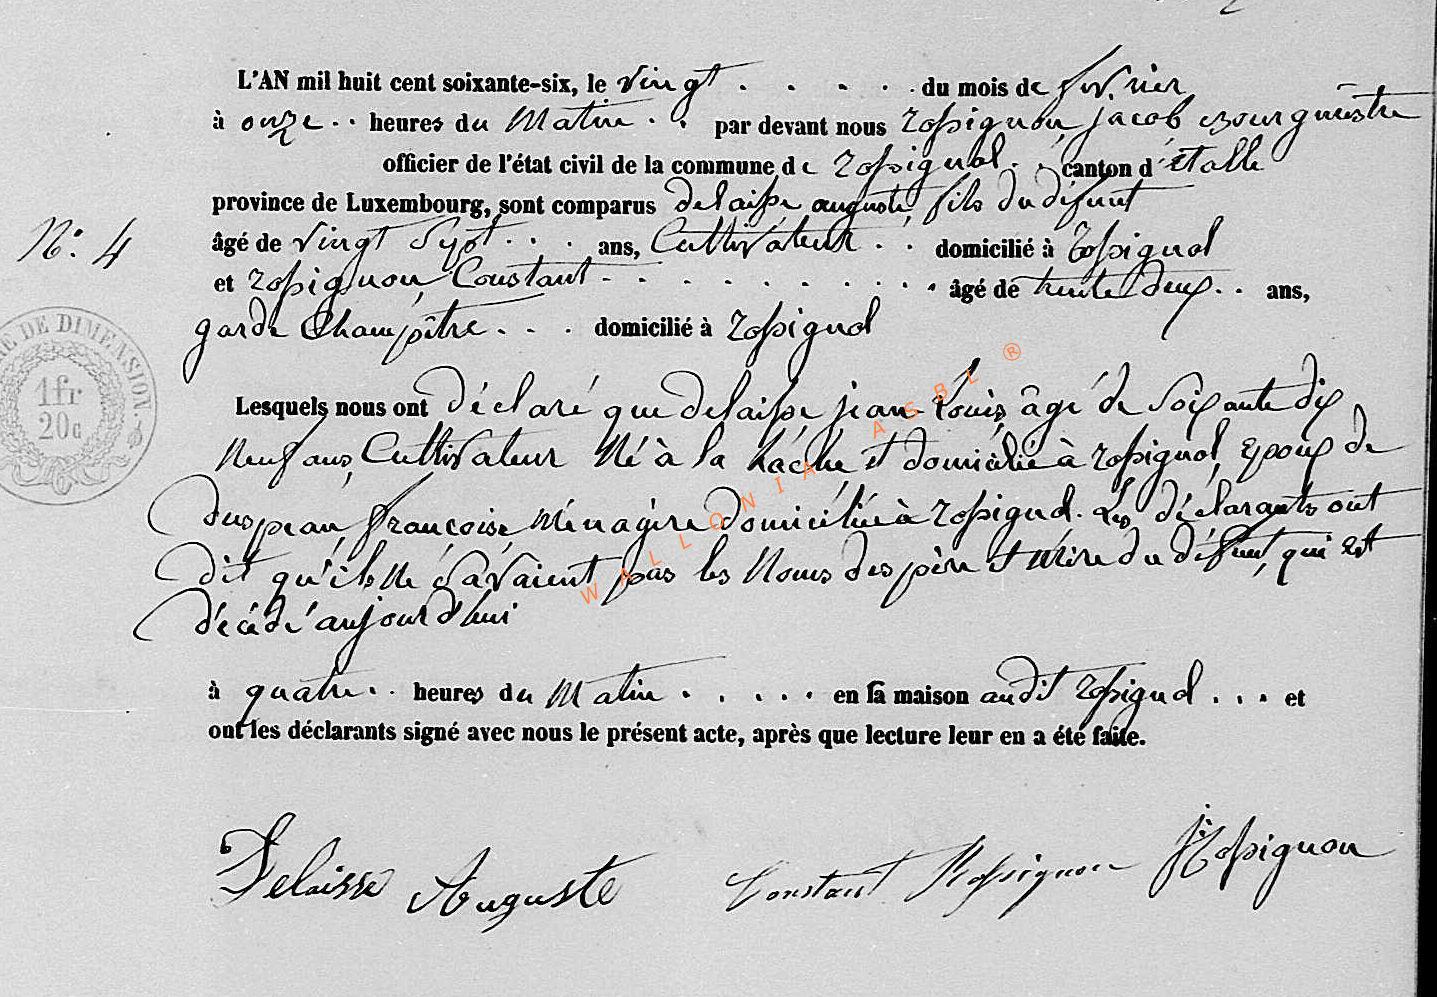 L'AN mil huit cent soixante-six, le vingt . . . . . du mois de fevrier
à onze . . heures du Matin . . par devant nous Rossignon jacob bourgmestre
officier de l'état civil de la commune de Rossignol . . canton d'étalle
province de Luxembourg, sont comparus delaisse auguste, fils du défunt
N.º 4
âgé de vingt sept . . . ans, Cultivateur . . domicilié à Rossignol
et Rossignon Constant . . . . . . . . . . âgé de trente deux . . ans,
garde Champêtre . . . domicilié à Rossignol
RE DE DIMENSION.
1 fr
20 c
Lesquels nous ont déclaré que delaisse jean-Louis, âgé de Soixante dix
Neuf ans, Cultivateur Né à la hache et domicilié à Rossignol, Epoux de
duspeau, françoise Ménagère domiciliée à Rossignol. Les déclarants ont
dit qu'ils Ne savaient pas les Noms des père et Mère du défunt, qui est
décédé aujourd'hui
à quatre . . heures du Matin . . . . . en sa maison audit Rossignol . . . et
ont les déclarants signé avec nous le présent acte, après que lecture leur en a été faite.
Delaisse Auguste Constant Rossignon J Rossignon
WALLONIA ASBL ®